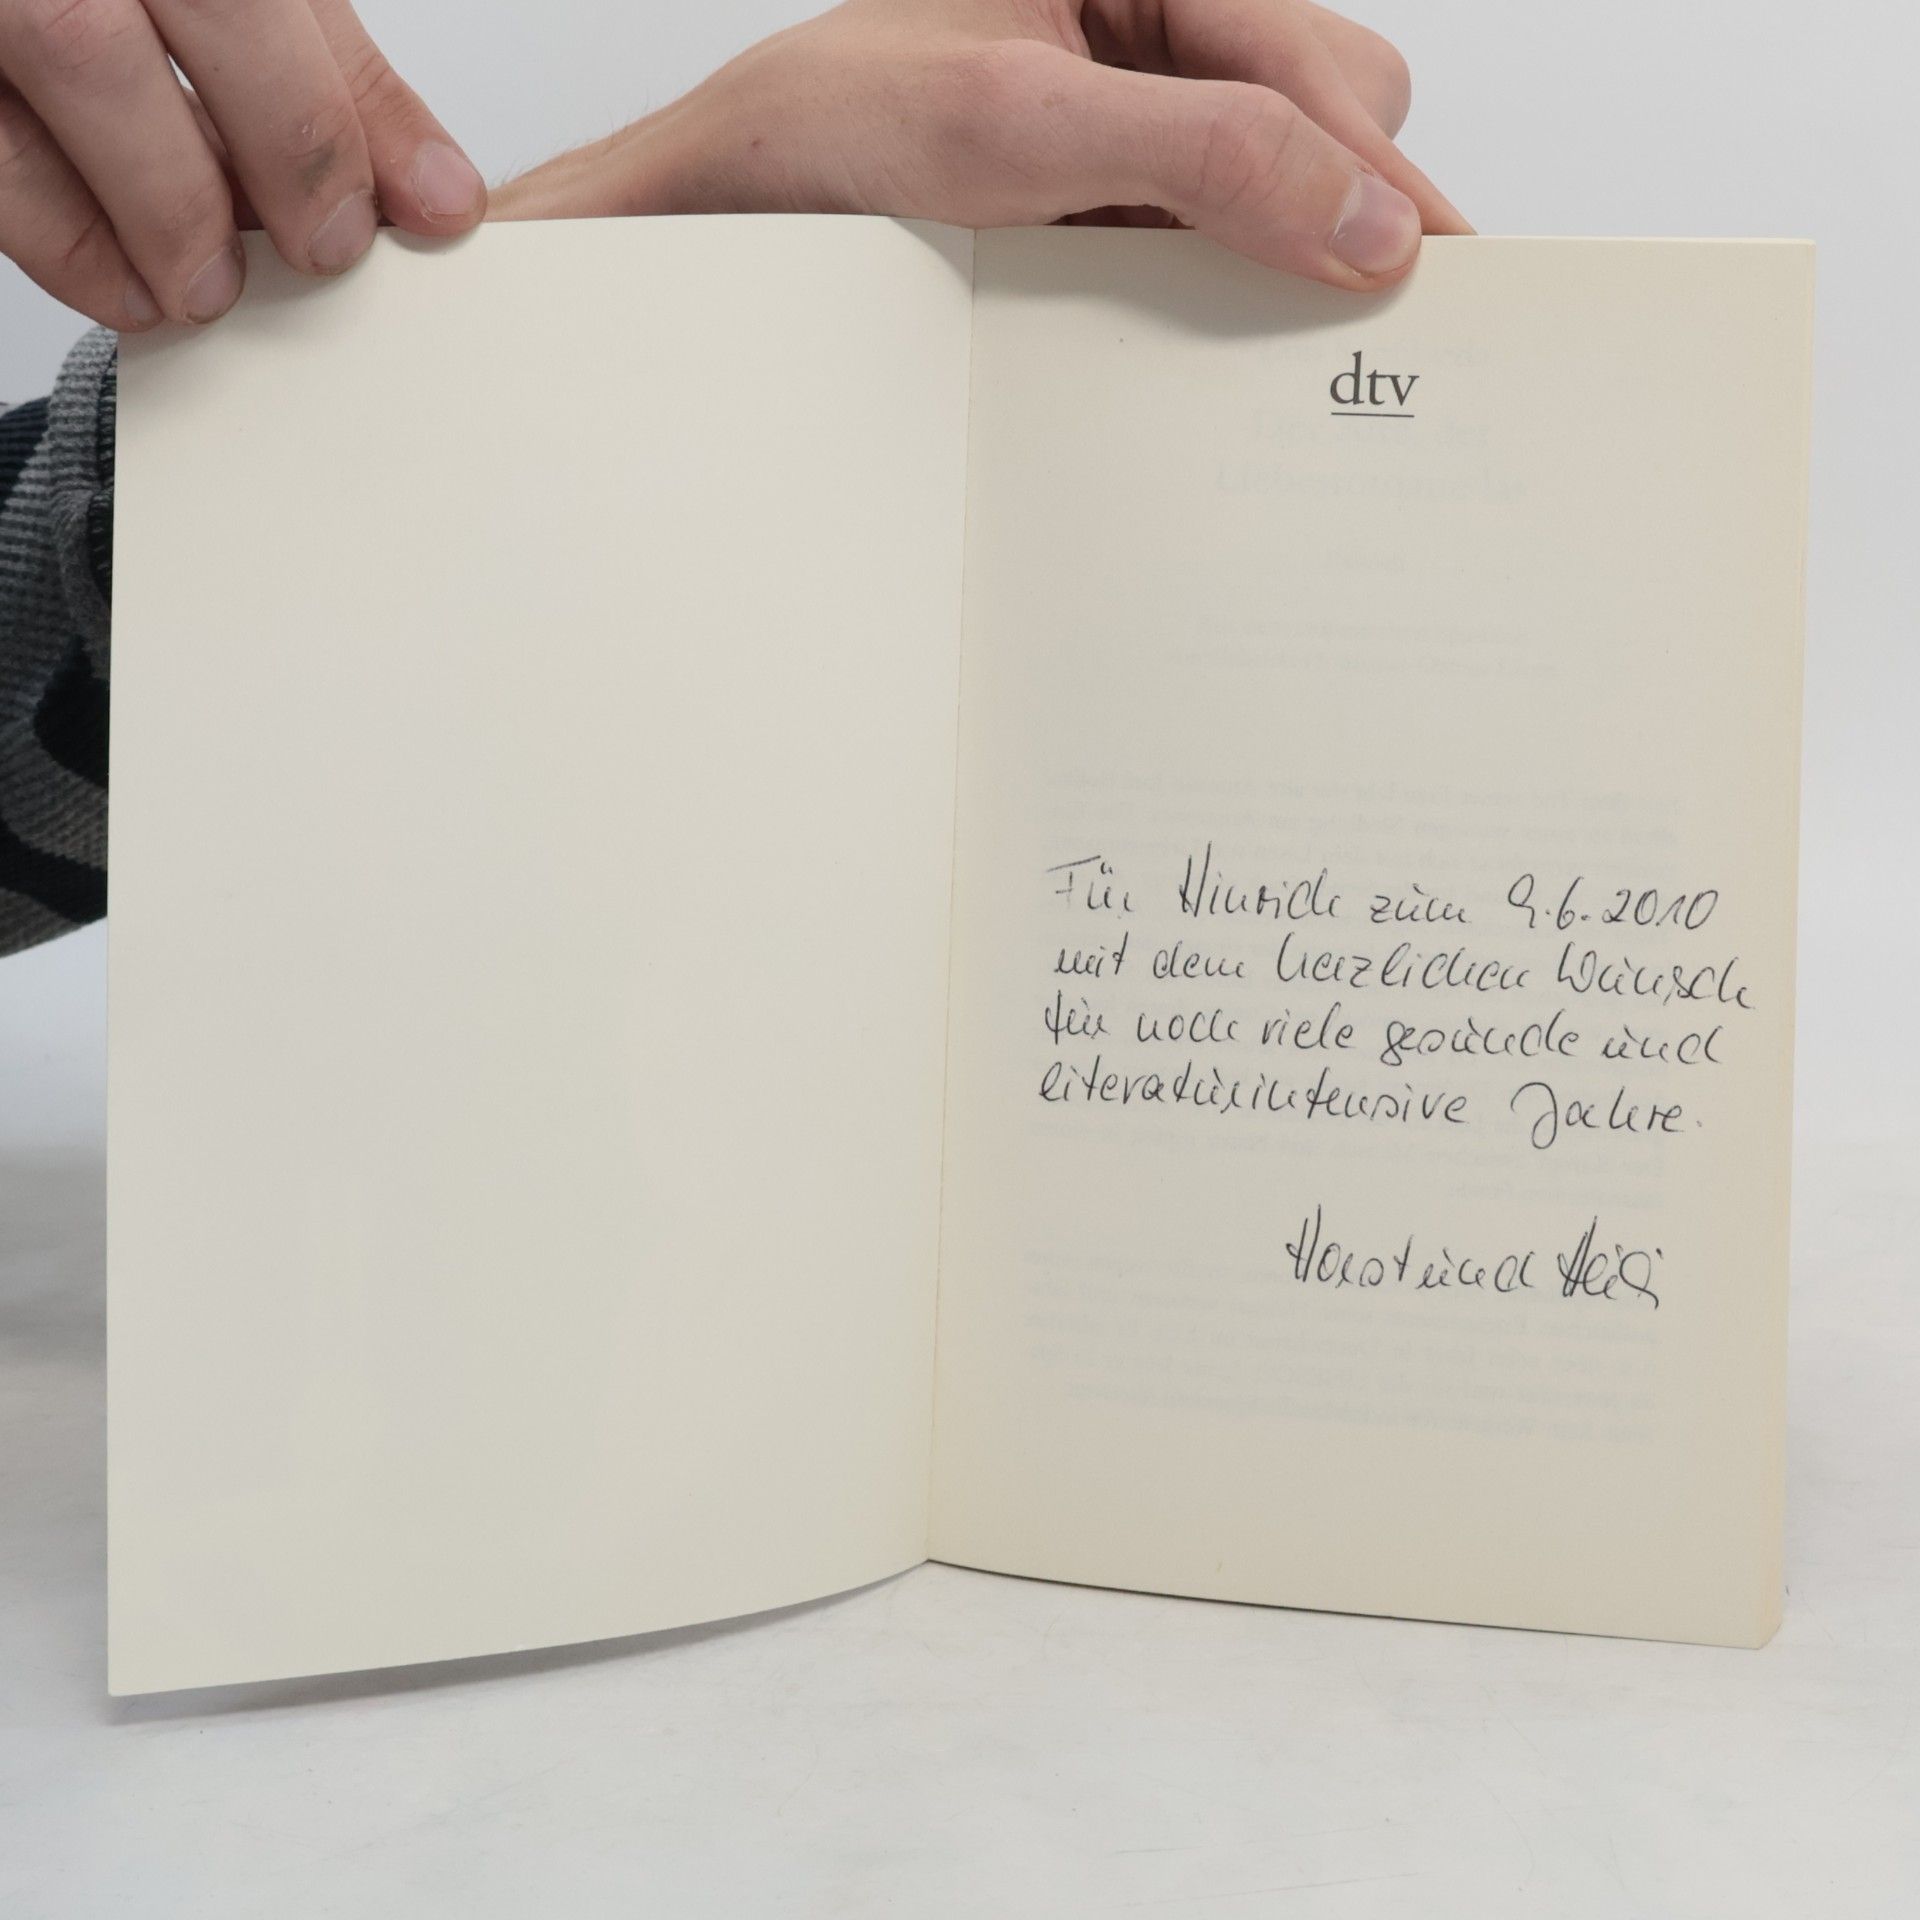 dtv
Für Hinrich zum 9.6.2010
mit dem herzlichen Wunsch
für noch viele gesunde und
literaturintensive Jahre.
Horst und Heidi